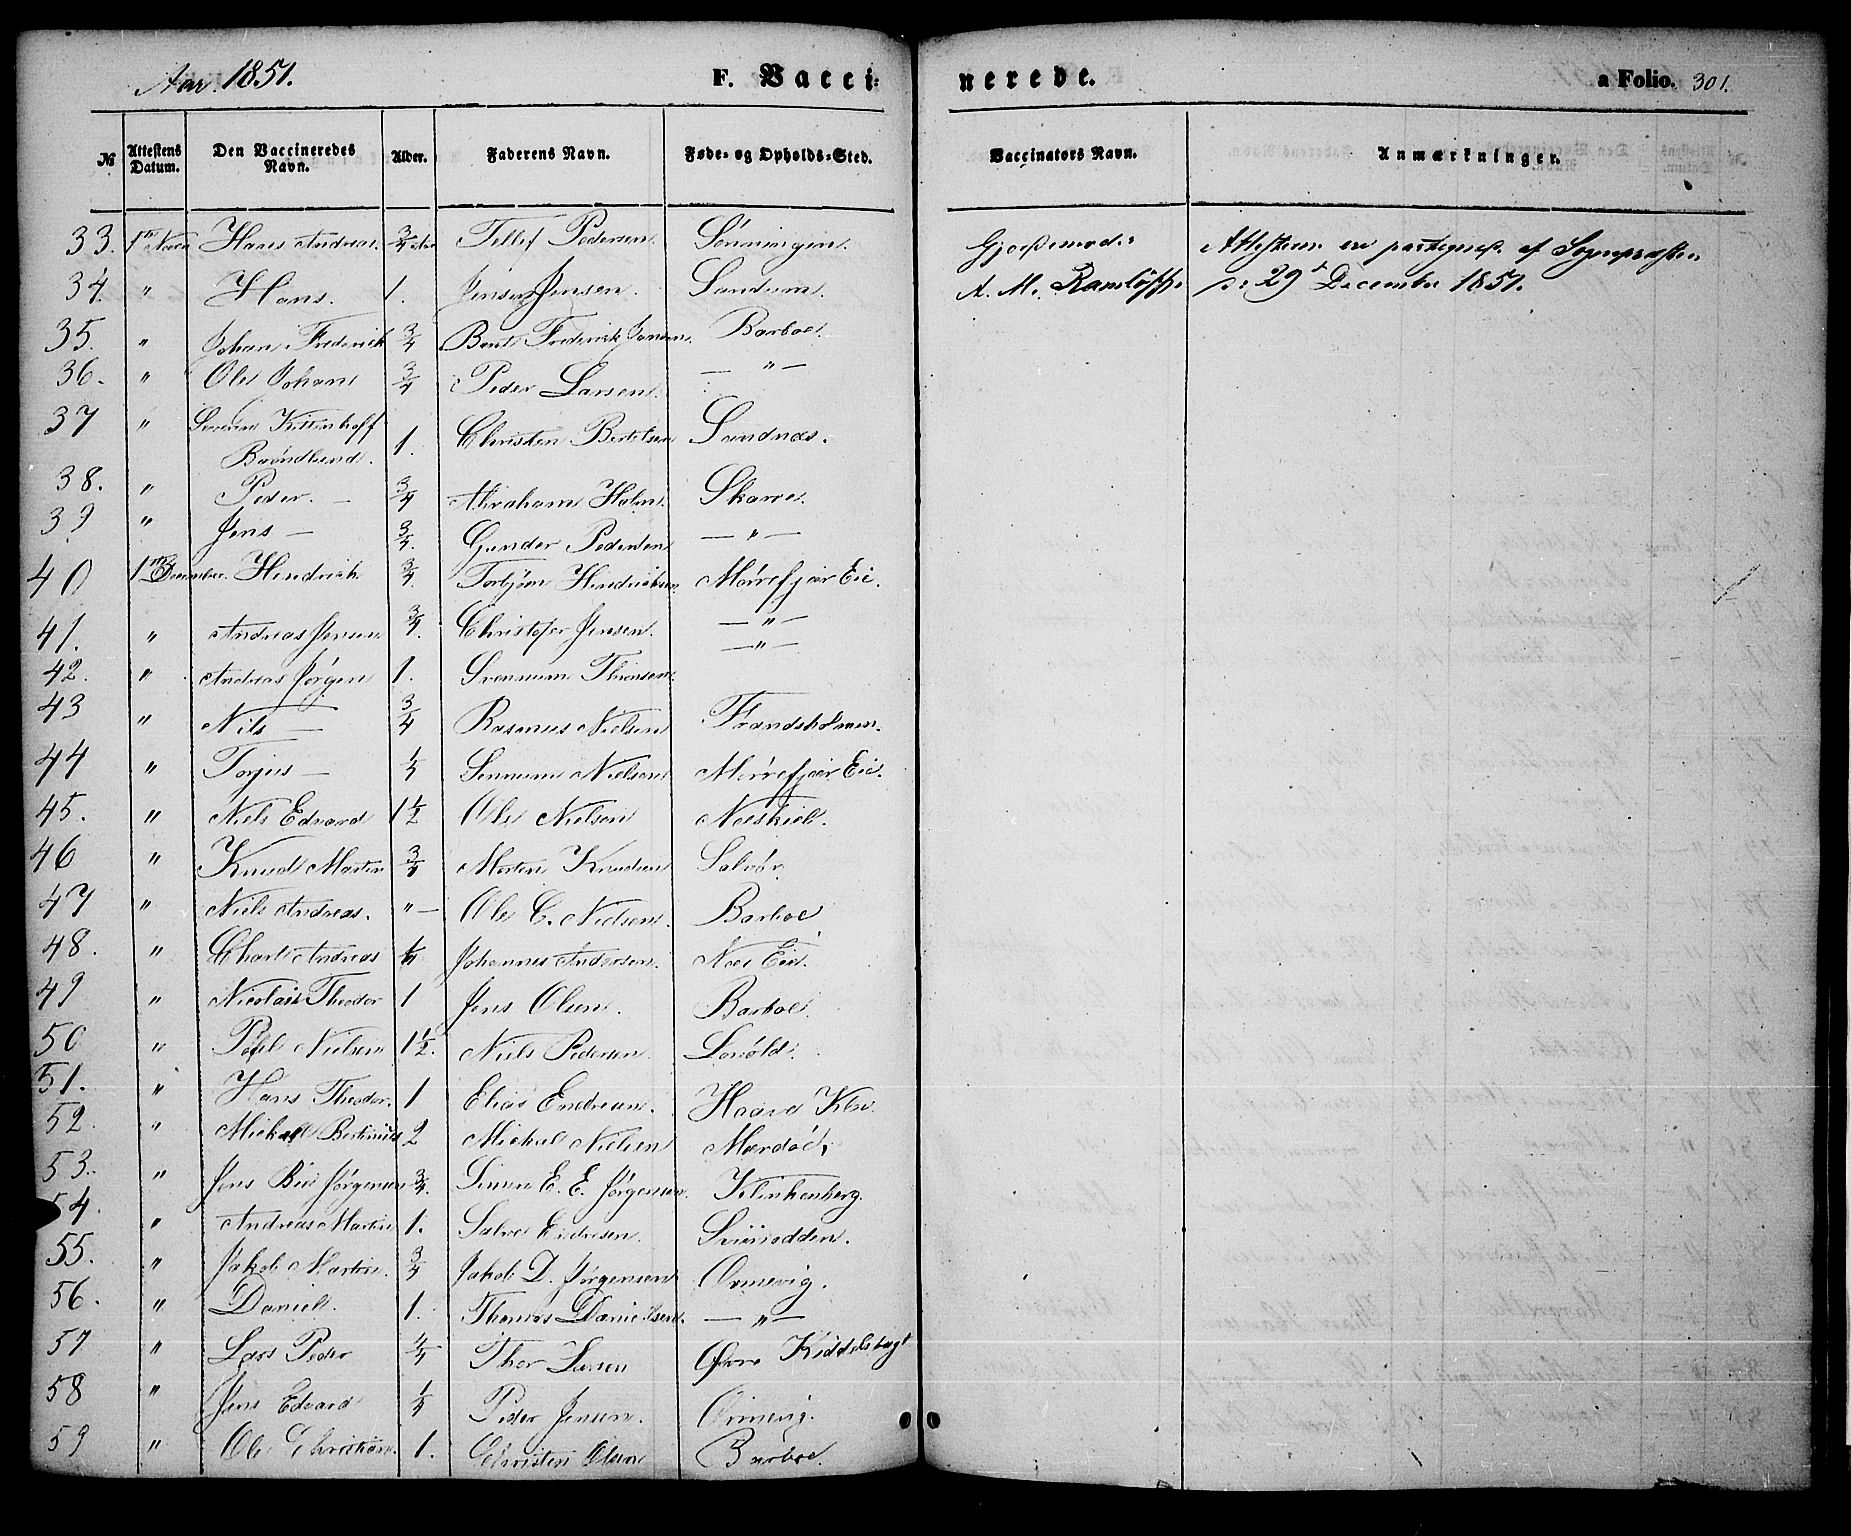 Aar. 1851. F. Vacci-
nerede. a Folio. 301.
№ Attestens Datum. Den Vaccineredes Navn. Alder. Faderens Navn. Føde- og Opholds-Sted. Vaccinators Navn. Anmærkninger.
33. 1ste Novbr Hans Andreas. 3/4 Aar Tellef Pedersen. Sønningen. Gjordemoder Attesterne ere paategnede af Sognepræsten
34. " Hans. 1. Jens Jensen. Sandum. A. M. Ramløff. d: 29d December 1851.
35. " Johan Frederik 3/4 Bent Frederik Jansen. Barboe.
36. " Ole Johan 3/4 Peder Larsen. — " —
37 " Severin Kittenhoff
Brøndlund. 1. Christen Bertelsen Sandnæs.
38. " Peder. — 3/4 Abraham Holm. Skarre.
39. " Jens — 3/4. Gunder Pedersen — " —
40 1ste December. Hendrik 3/4. Torbjørn Hendriksen. Mørrefjær Eie.
41. " Andreas Jensen 3/4. Christofer Jensen. — " —
42. " Andreas Jørgen 1. Svennum Thorsen. — " —
43 " Nils — 3/4 Rasmus Nielsen Frandsholmen.
44 " Torjus — 1/4 Nielsen Mørrefjær Eie.
45. " Niels Edvard 1 1/2 Ole Nielsen Neeskiel.
46 " Knud Martin 3/4 Morten Knudsen Salvør.
47 " Niels Andreas. " — Ole C. Nielsen. Barboe
48. " Charl Andreas 1/4 Johannes Andersen. Næs Eie.
49 " Nicolai Theodor 1 Jens Olsen. Barboe.
50 " Nielsen 1 1/2. Niels Pedersen. Lovold.
51. " Hans Theodor. 1 Elias Endresen. Haave Kln.
52. " Mickal Bertinius 2 Mickal Nielsen Mærdøe,
53. " Jens Bie Jørgensen 3/4. Simon E. E. Jørgensen. Klinkenberg.
54. " Andreas Martin 1. Salve Endresen. Sviinodden.
55. " Jakob Martin. 3/4 Jakob D. Jørgensen Ormevig.
56. " Daniel. 1. Thomas Danielsen. — " —
57 " Lars Peder 3/4 Thor Larsen Øvre Kiddelsbugt
58 " Jens Edvard 1/4 Peder Jensen. Ormevig.
59 " Ole Christian. 1. Christen Olsen Barboe.